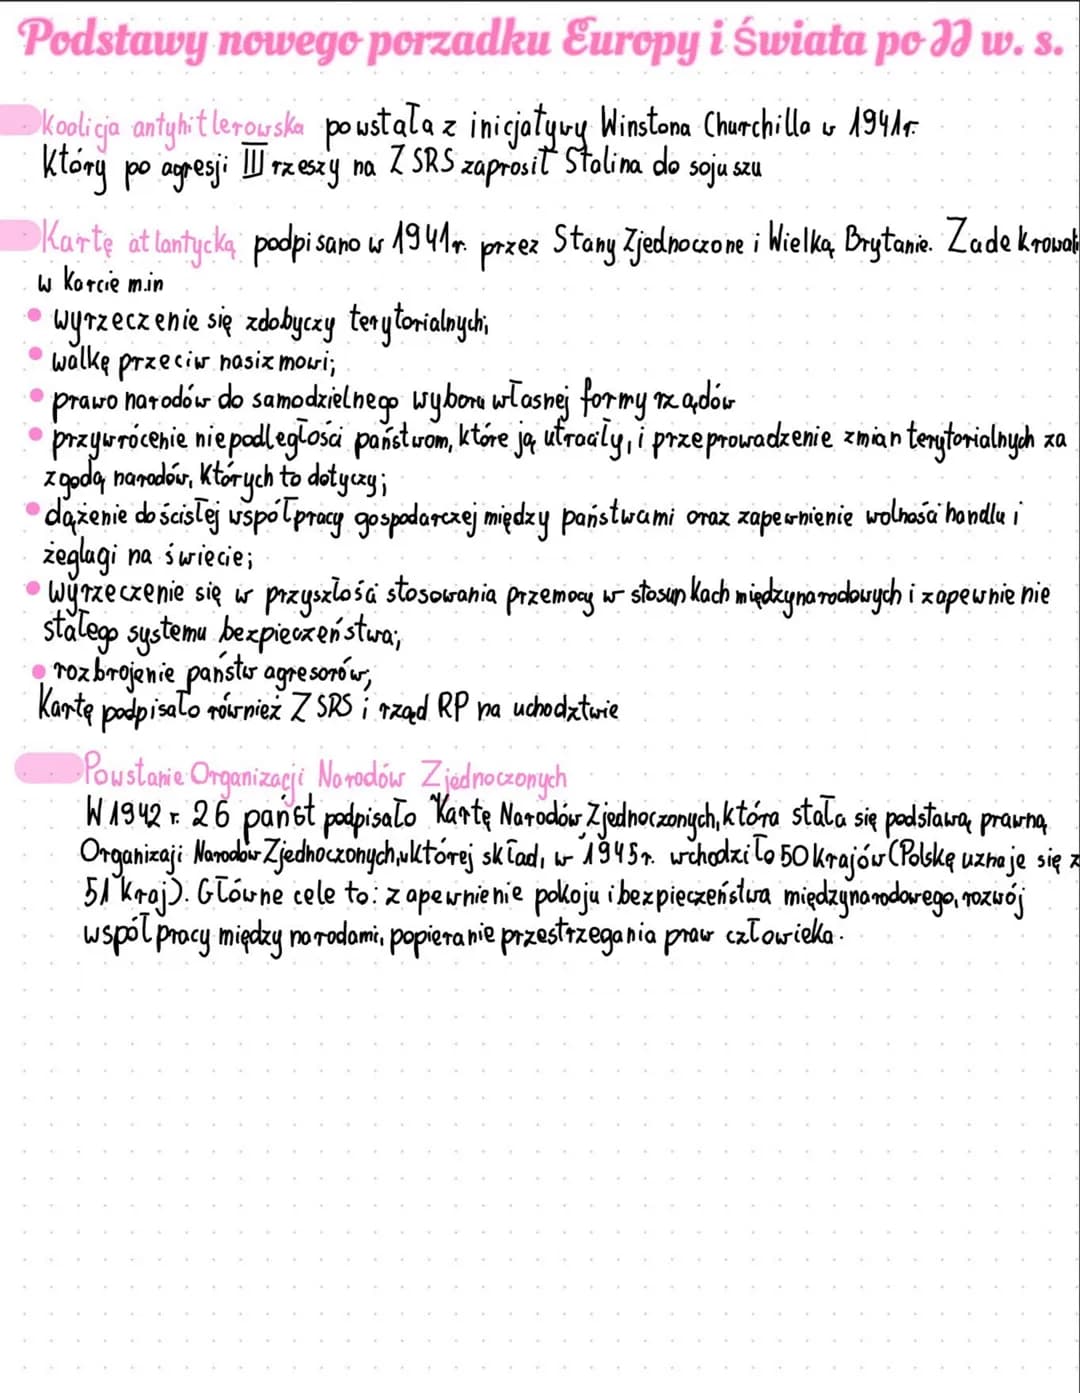 Podstawy nowego porzadku Europy i Świata po II w. s.
Koalicja antyhitlerowska powstała z inicjatywy Winstona Churchilla w 1941r.
Który po agresji III rzeszy na ZSRS zaprosił Stalina do sojuszu
Kartę atlantycką podpisano w 1941r. przez Stany Zjednoczone i Wielką Brytanie. Zadekrowali
w Karcie m.in
• wyrzeczenie się zdobyczy terytorialnych;
• walkę przeciw nasizmowi;
• prawo narodów do samodzielnego wyboru własnej formy rządów
• przywrócenie niepodległości państwom, które ją utraciły, i przeprowadzenie zmian terytorialnych za
zgodą narodów, Których to dotyczy;
• dążenie do ścisłej współpracy gospodarczej między państwami oraz zapewnienie wolności handlu i
żeglugi na świecie;
• wyrzeczenie się w przyszłości stosowania przemocy w stosunkach międzynarodowych i zapewnienie
stałego systemu bezpieczeństwa;
• rozbrojenie państw agresorów;
Kartę podpisało również ZSRS i rząd RP na uchodztwie
Powstanie Organizacji Narodów Zjednoczonych
W 1942 r. 26 państ podpisało Kartę Narodów Zjednoczonych, która stała się podstawą prawną
Organizaji Narodów Zjednoczonych, w której skład, w 1945r. wchodziło 50 krajów (Polskę uznaje się z
51 kraj). Główne cele to: zapewnienie pokoju i bezpieczeństwa międzynarodowego, rozwój
współpracy między narodami, popieranie przestrzegania praw człowieka.